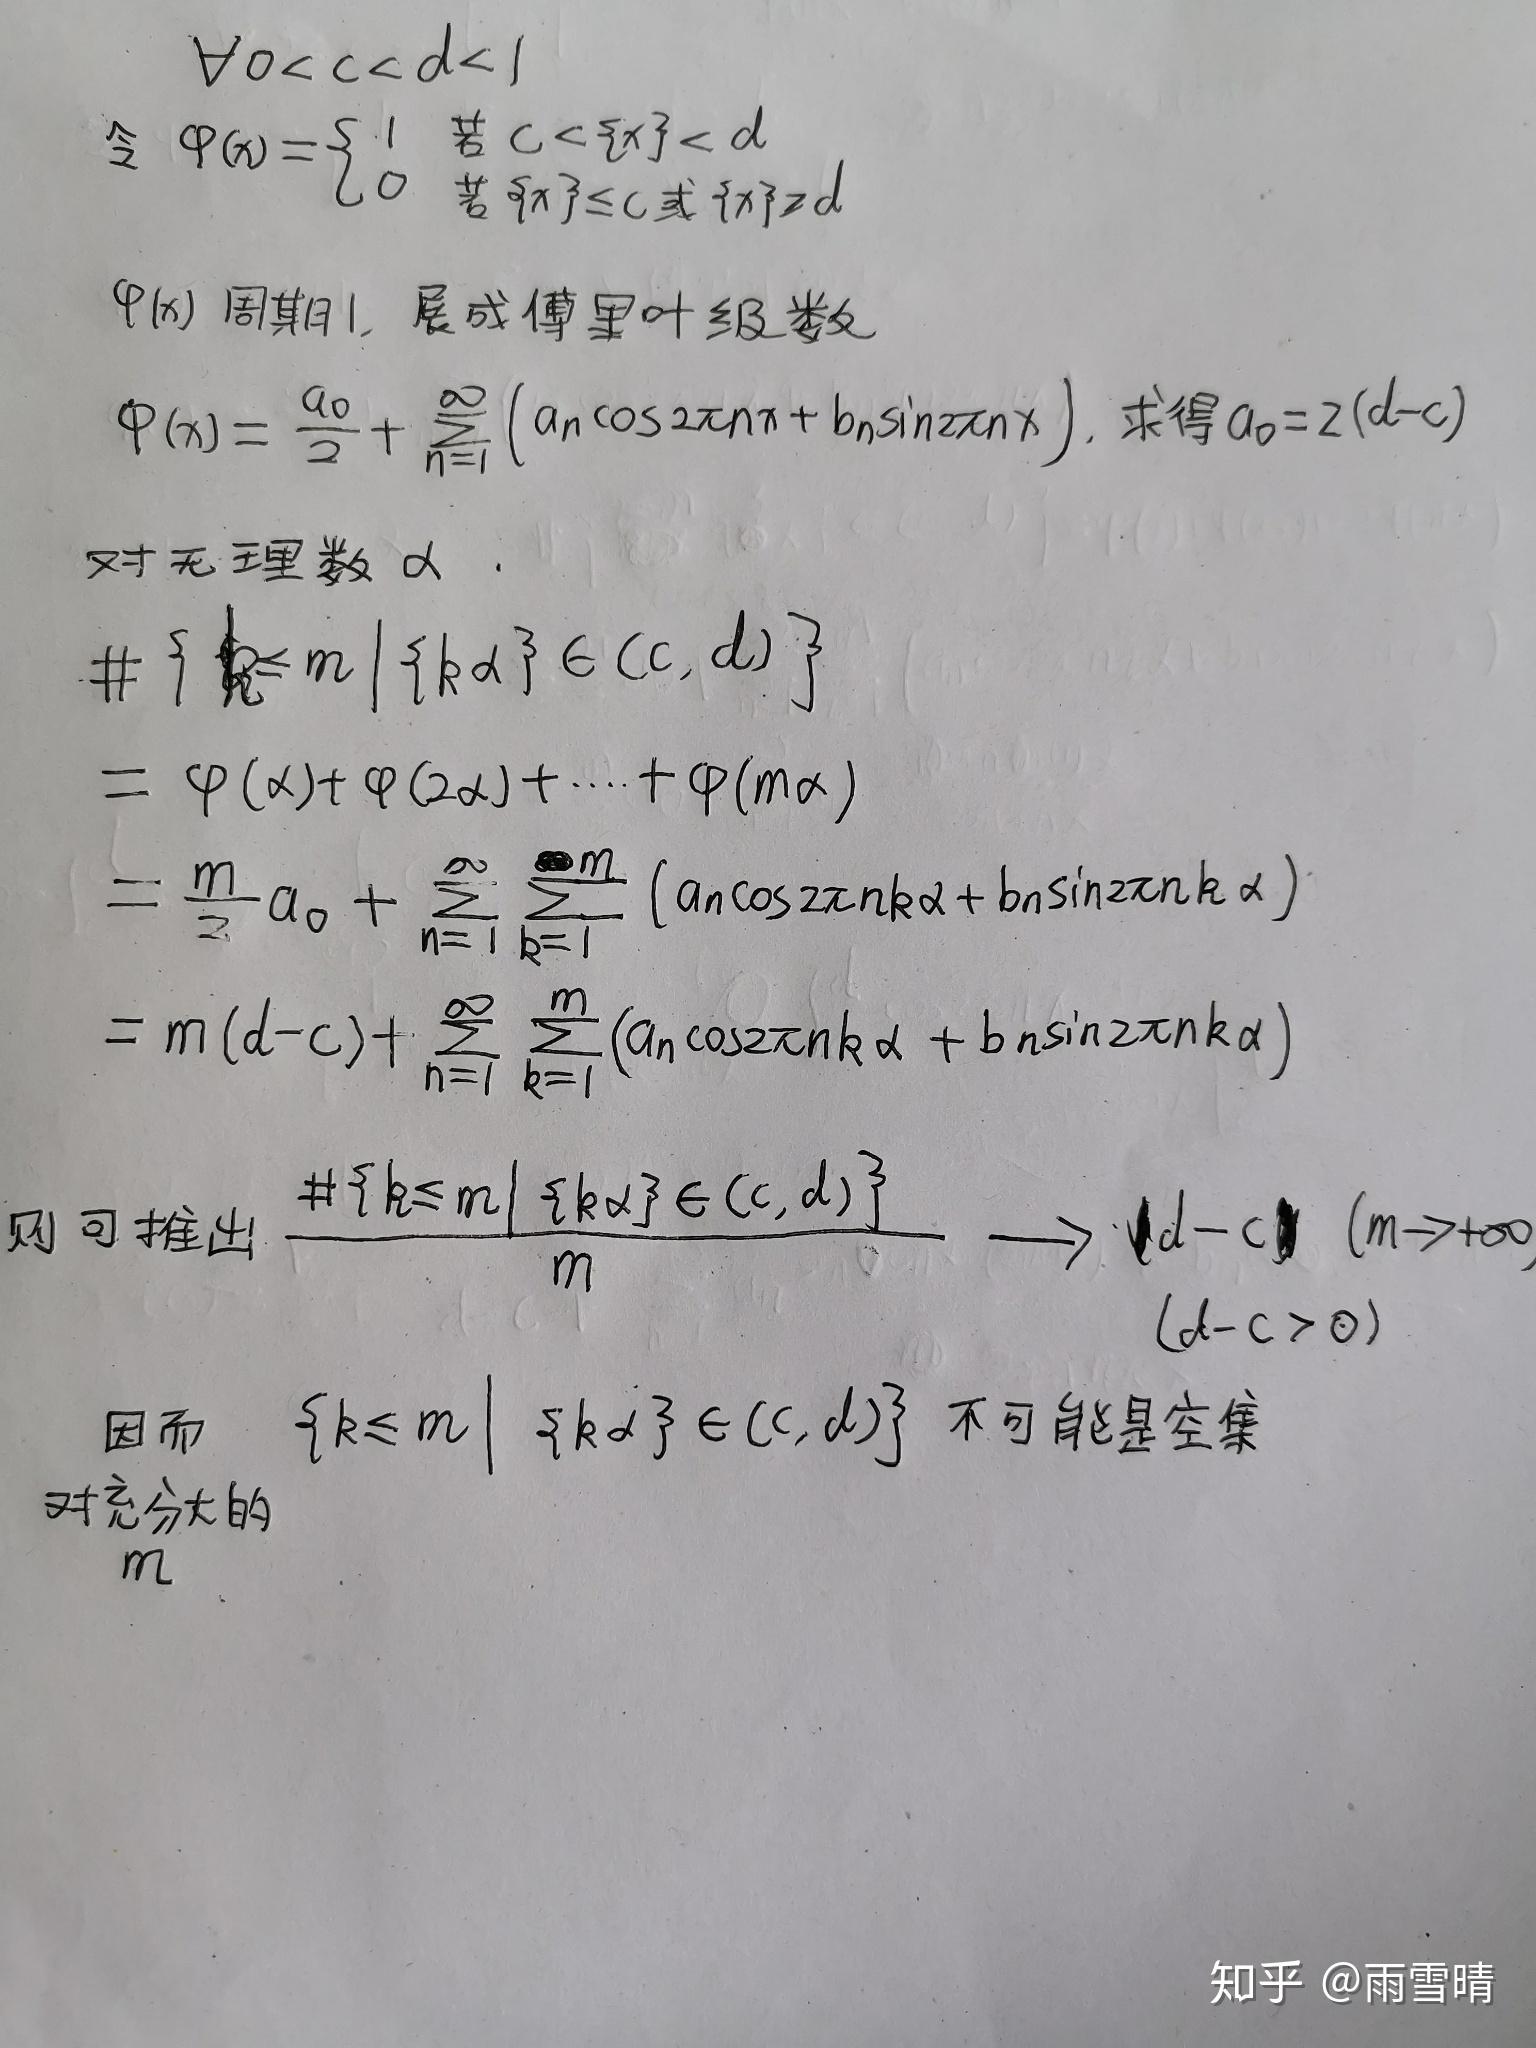 ∀0<c<d<1
令 φ(x)={ 1 若 c<{x}<d
0 若{x}≤c或{x}≥d
φ(x) 周期1, 展成傅里叶级数
φ(x)= a₀/2 + ∑_{n=1}^{∞} (aₙcos2πnx+bₙsin2πnx), 求得a₀=2(d-c)
对无理数α.
#{k≤m|{kα}∈(c,d)}
= φ(α)+φ(2α)+····+φ(mα)
= m/2 a₀ + ∑_{n=1}^{∞} ∑_{k=1}^{m} (aₙcos2πnkα+bₙsin2πnkα)
= m(d-c)+ ∑_{n=1}^{∞} ∑_{k=1}^{m} (aₙcos2πnkα + bₙsin2πnkα)
则可推出 #{k≤m|{kα}∈(c,d)} / m → d-c (m→+∞)
(d-c>0)
因而 {k≤m| {kα}∈(c,d)} 不可能是空集
对充分大的
m
知乎 @雨雪晴